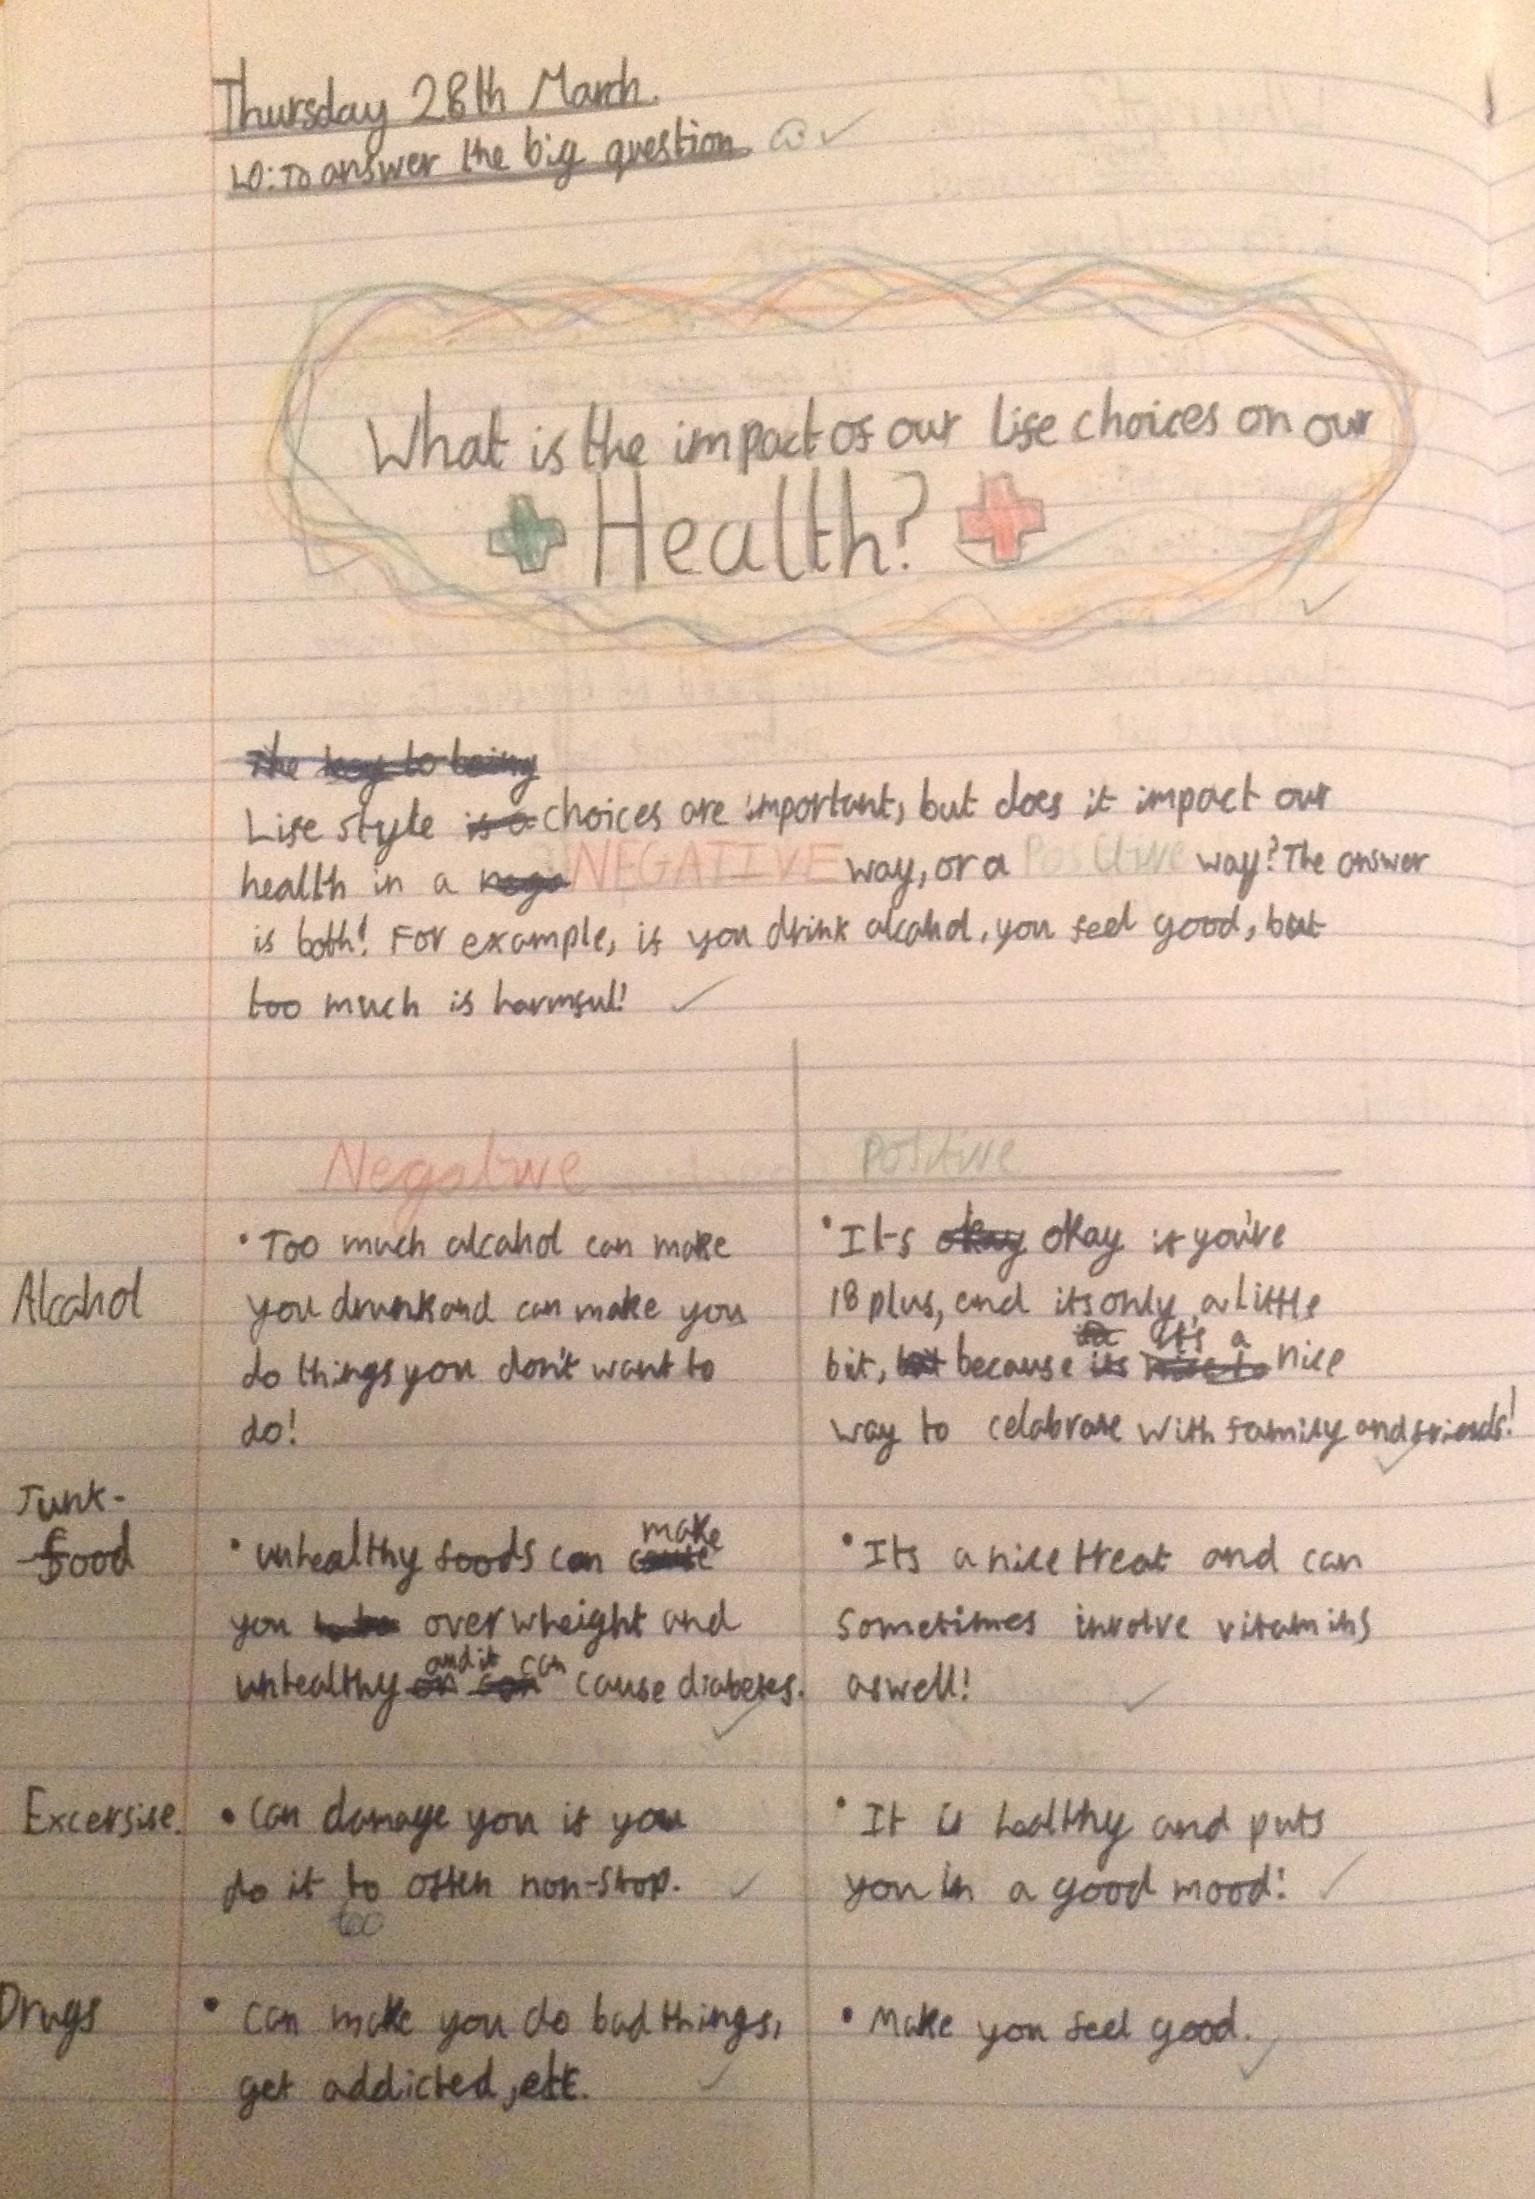 Thursday 28th March.
LO: To answer the big question
What is the impact of our life choices on our
Health?
The key to being
Life style is a choices are important, but does it impact our
health in a nega NEGATIVE way, or a POSitive way? The answer
is both! For example, if you drink alcahol, you feel good, but
too much is harmful!
Negative
Positive
Alcahol
• Too much alcahol can make
you drunk and can make you
do things you don't want to
do!
• It's okay okay if you're
18 plus, and its only a little
it's a
bit, but because its nice to nice
way to celabrate with family and friends!
Junk-
food
make
• unhealthy foods can cause
you to be over wheight and
and it can
unhealthy can cause diabetes.
• Its a nice treat and can
sometimes involve vitamins
aswell!
Excersise.
• Can damage you if you
do it to often non-stop.
too
• It is healthy and puts
you in a good mood!
Drugs
• Can make you do bad things,
get addicted, etc.
• Make you feel good.